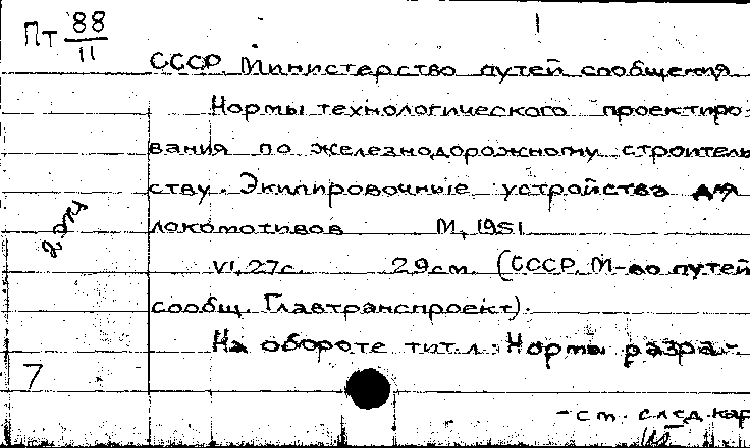 Пт 88/11
СССР. Министерство путей сообщения
Нормы технологического проектиро-
вания по железнодорожному строитель
ству. Экипировочные устройства для
локомотивов М, 1951
VI, 27с. 29см. (СССР. М-во путей
сообщ. Главтранспроект).
На обороте тит.л: Нормы разра-
2 экз
7
- см. след. кар